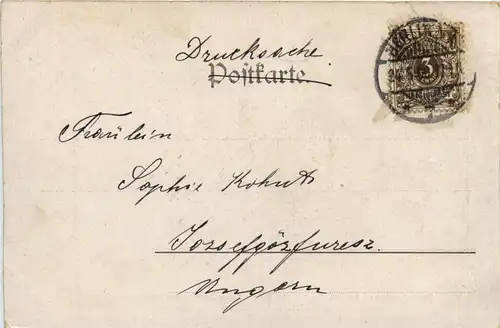 Drucksache
Postkarte.
3
Fräulein
Sophie Kohut
Jossefgőzfuresz
Ungarn